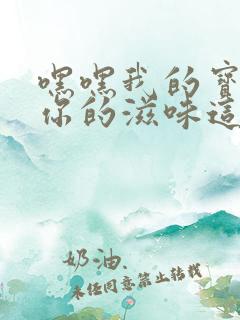 嘿嘿我的寶
你的滋味這
奶油.
未經同意禁止轉載